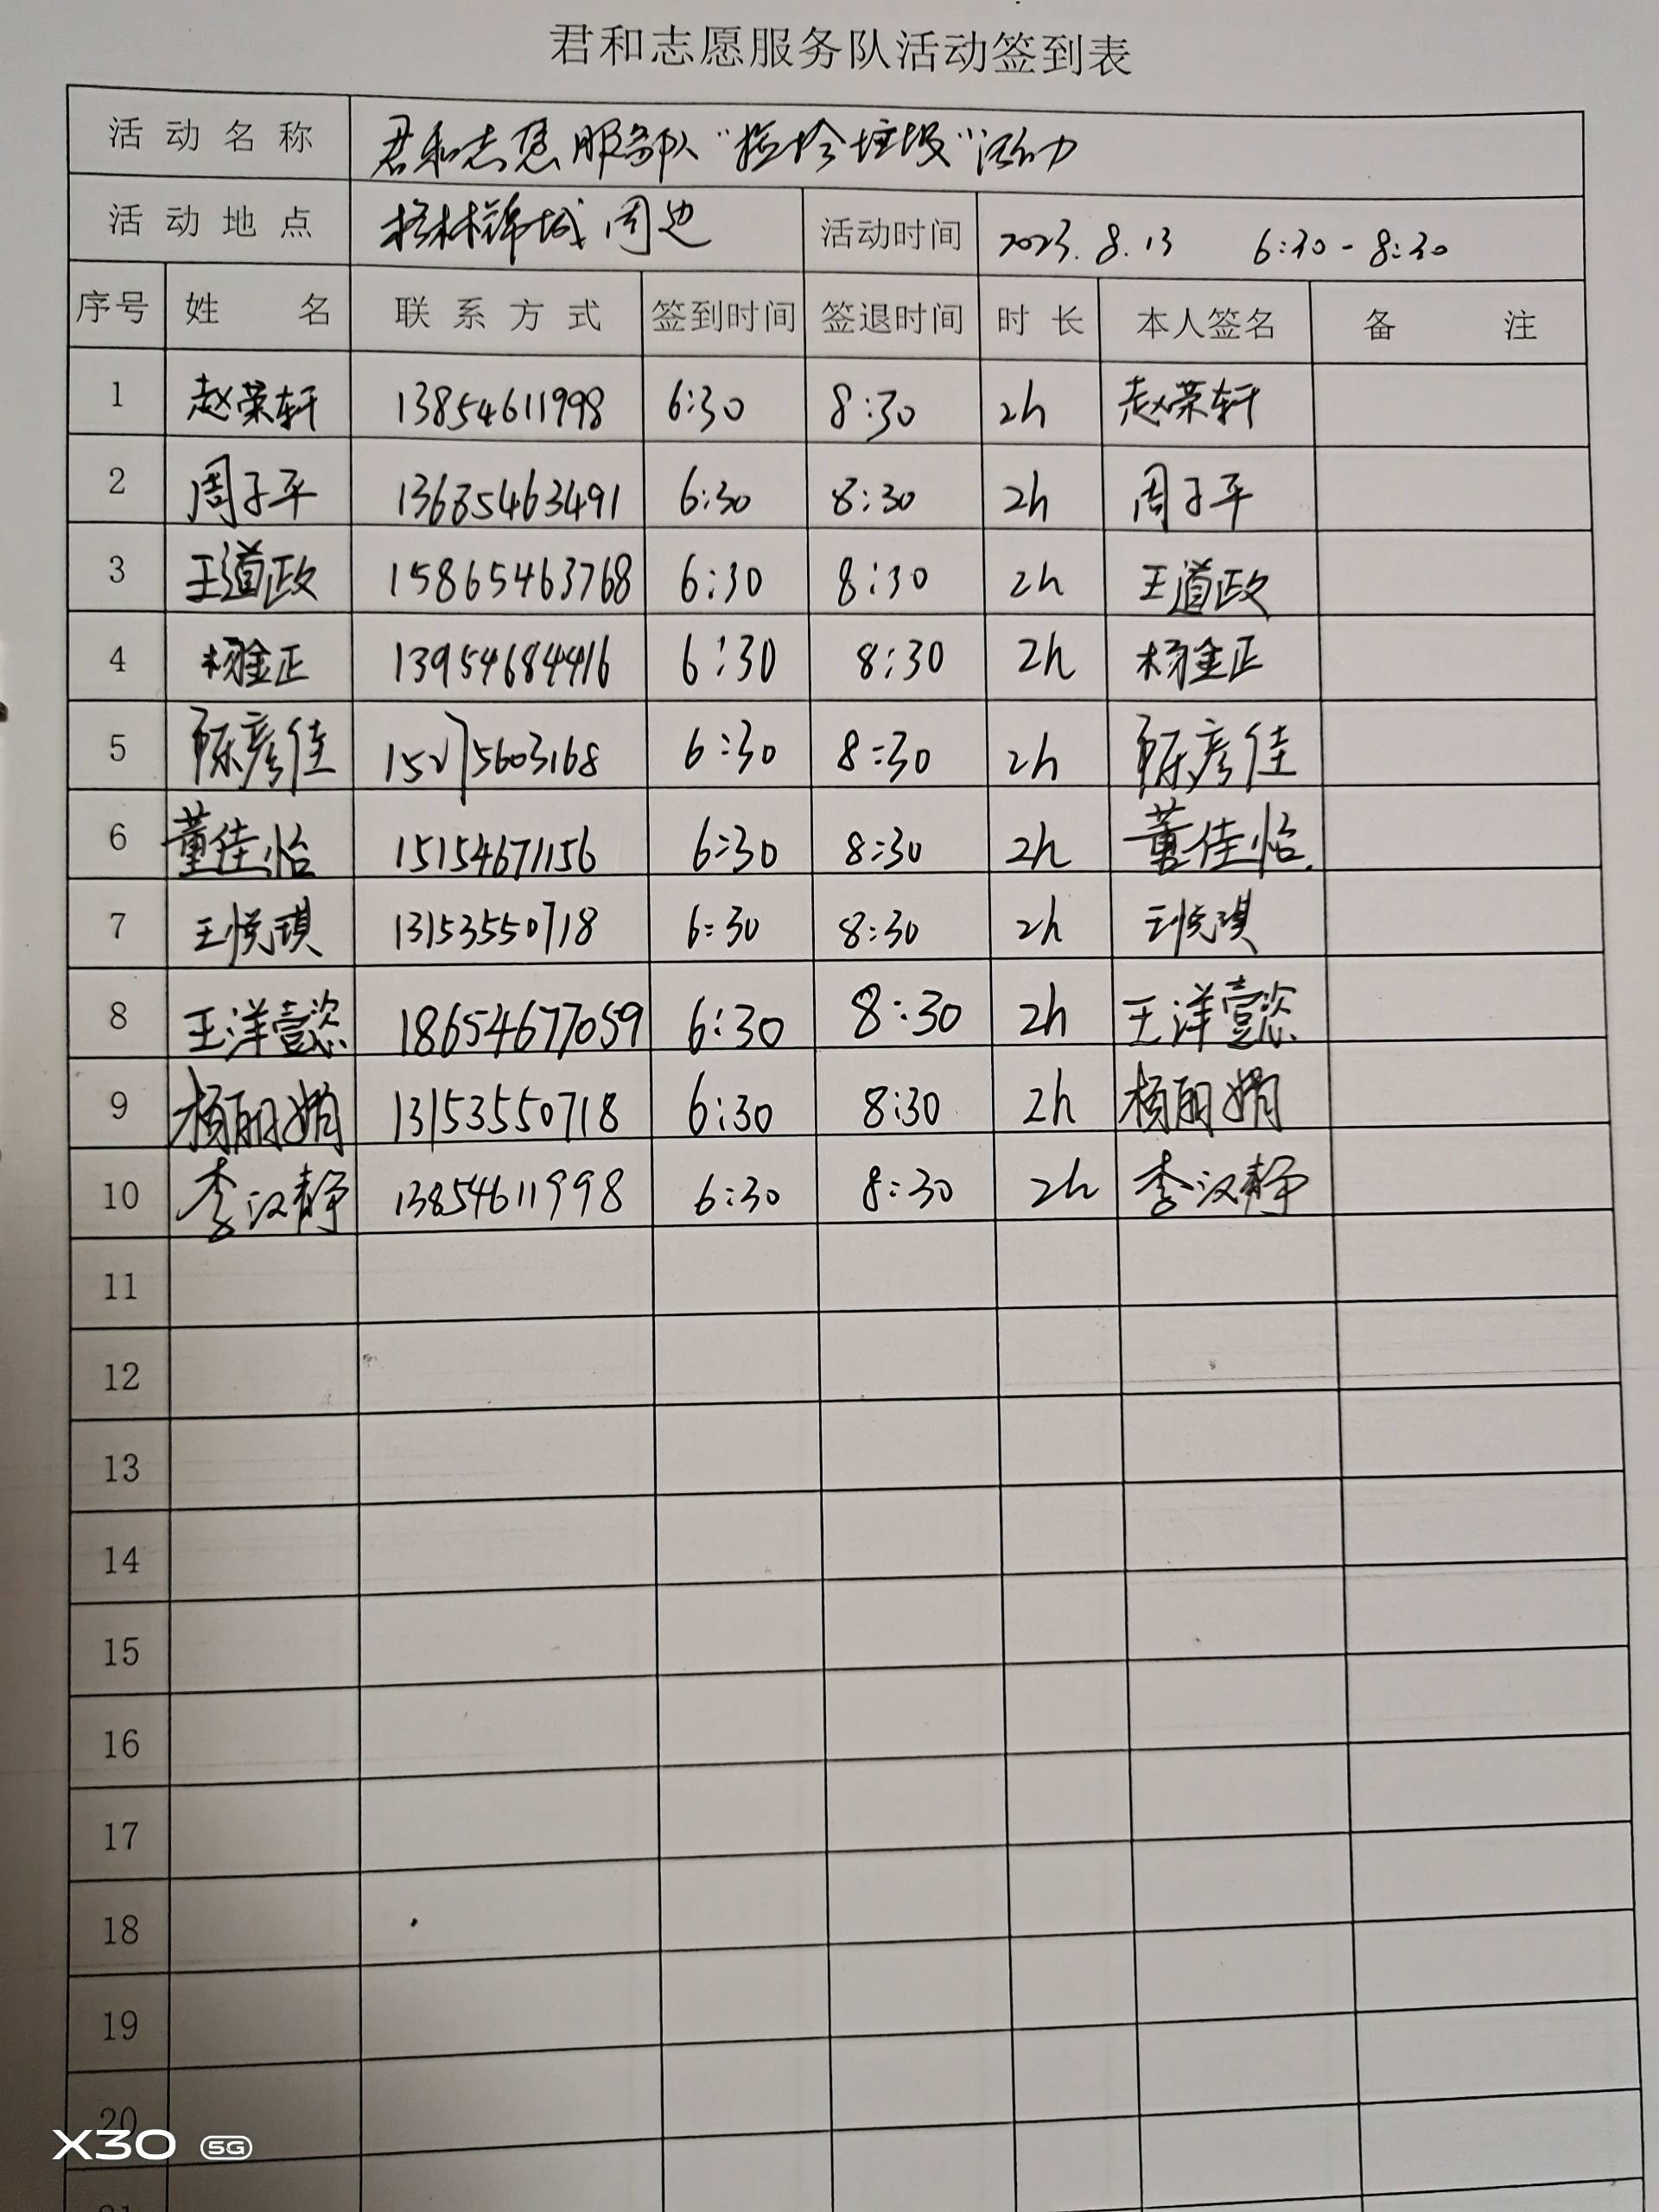 君和志愿服务队活动签到表
活动名称 君和志愿服务队“捡拾垃圾”活动
活动地点 格林锦城周边 活动时间 2023.8.13 6:30-8:30
序号 姓名 联系方式 签到时间 签退时间 时长 本人签名 备注
1 赵荣轩 13854611998 6:30 8:30 2h 赵荣轩
2 周子平 13685463491 6:30 8:30 2h 周子平
3 王道政 15865463768 6:30 8:30 2h 王道政
4 杨金正 13954684416 6:30 8:30 2h 杨金正
5 陈彦佳 6:30 8:30 2h 陈彦佳
6 董佳怡 15154671156 6:30 8:30 2h 董佳怡
7 王悦琪 13153550718 6:30 8:30 2h 王悦琪
8 王洋懿 18654677059 6:30 8:30 2h 王洋懿
9 杨丽娟 13153550718 6:30 8:30 2h 杨丽娟
10 李汉静 13854611998 6:30 8:30 2h 李汉静
11
12
13
14
15
16
17
18
19
20
X30 5G
21